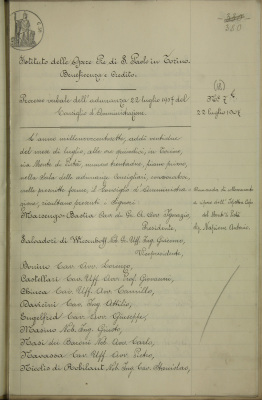 350
Istituto delle Opere Pie di S. Paolo in Torino.
Beneficenza e Credito.
Processo verbale dell'adunanza 22 luglio 1907 del
Consiglio d'Amministrazione
22 luglio 1907
L'anno millenovecentosette, addì ventidue
del mese di luglio, alle ore quindici, in Torino,
via Monte di Pietà, numero trentadue, piano primo,
nella Sala delle adunanze consigliari, convocatosi,
nelle prescritte forme, il Consiglio d'Amministra-
zione, risultano presenti i Signori
Marsengo-Bastia Gr. Cr. Avv. Ignazio,
Presidente,
Salvadori di Wiesenhoff Nob. Gr. Uff. Ing. Giacomo,
Vicepresidente,
Bonino Cav. Avv. Lorenzo,
Castellari Cav. Uff. Avv. Prof. Giovanni,
Cav. Uff. Avv. Camillo,
Cav. Ing. Attilio,
Engelfred Cav. Avv. Giuseppe,
Masino Nob. Ing. Guido,
Nasi dei Baroni Nob. Avv. Carlo,
Navassa Cav. Uff. Avv. Pietro,
Nicolis di Robilant Nob. Ing. Cav. Stanislao,